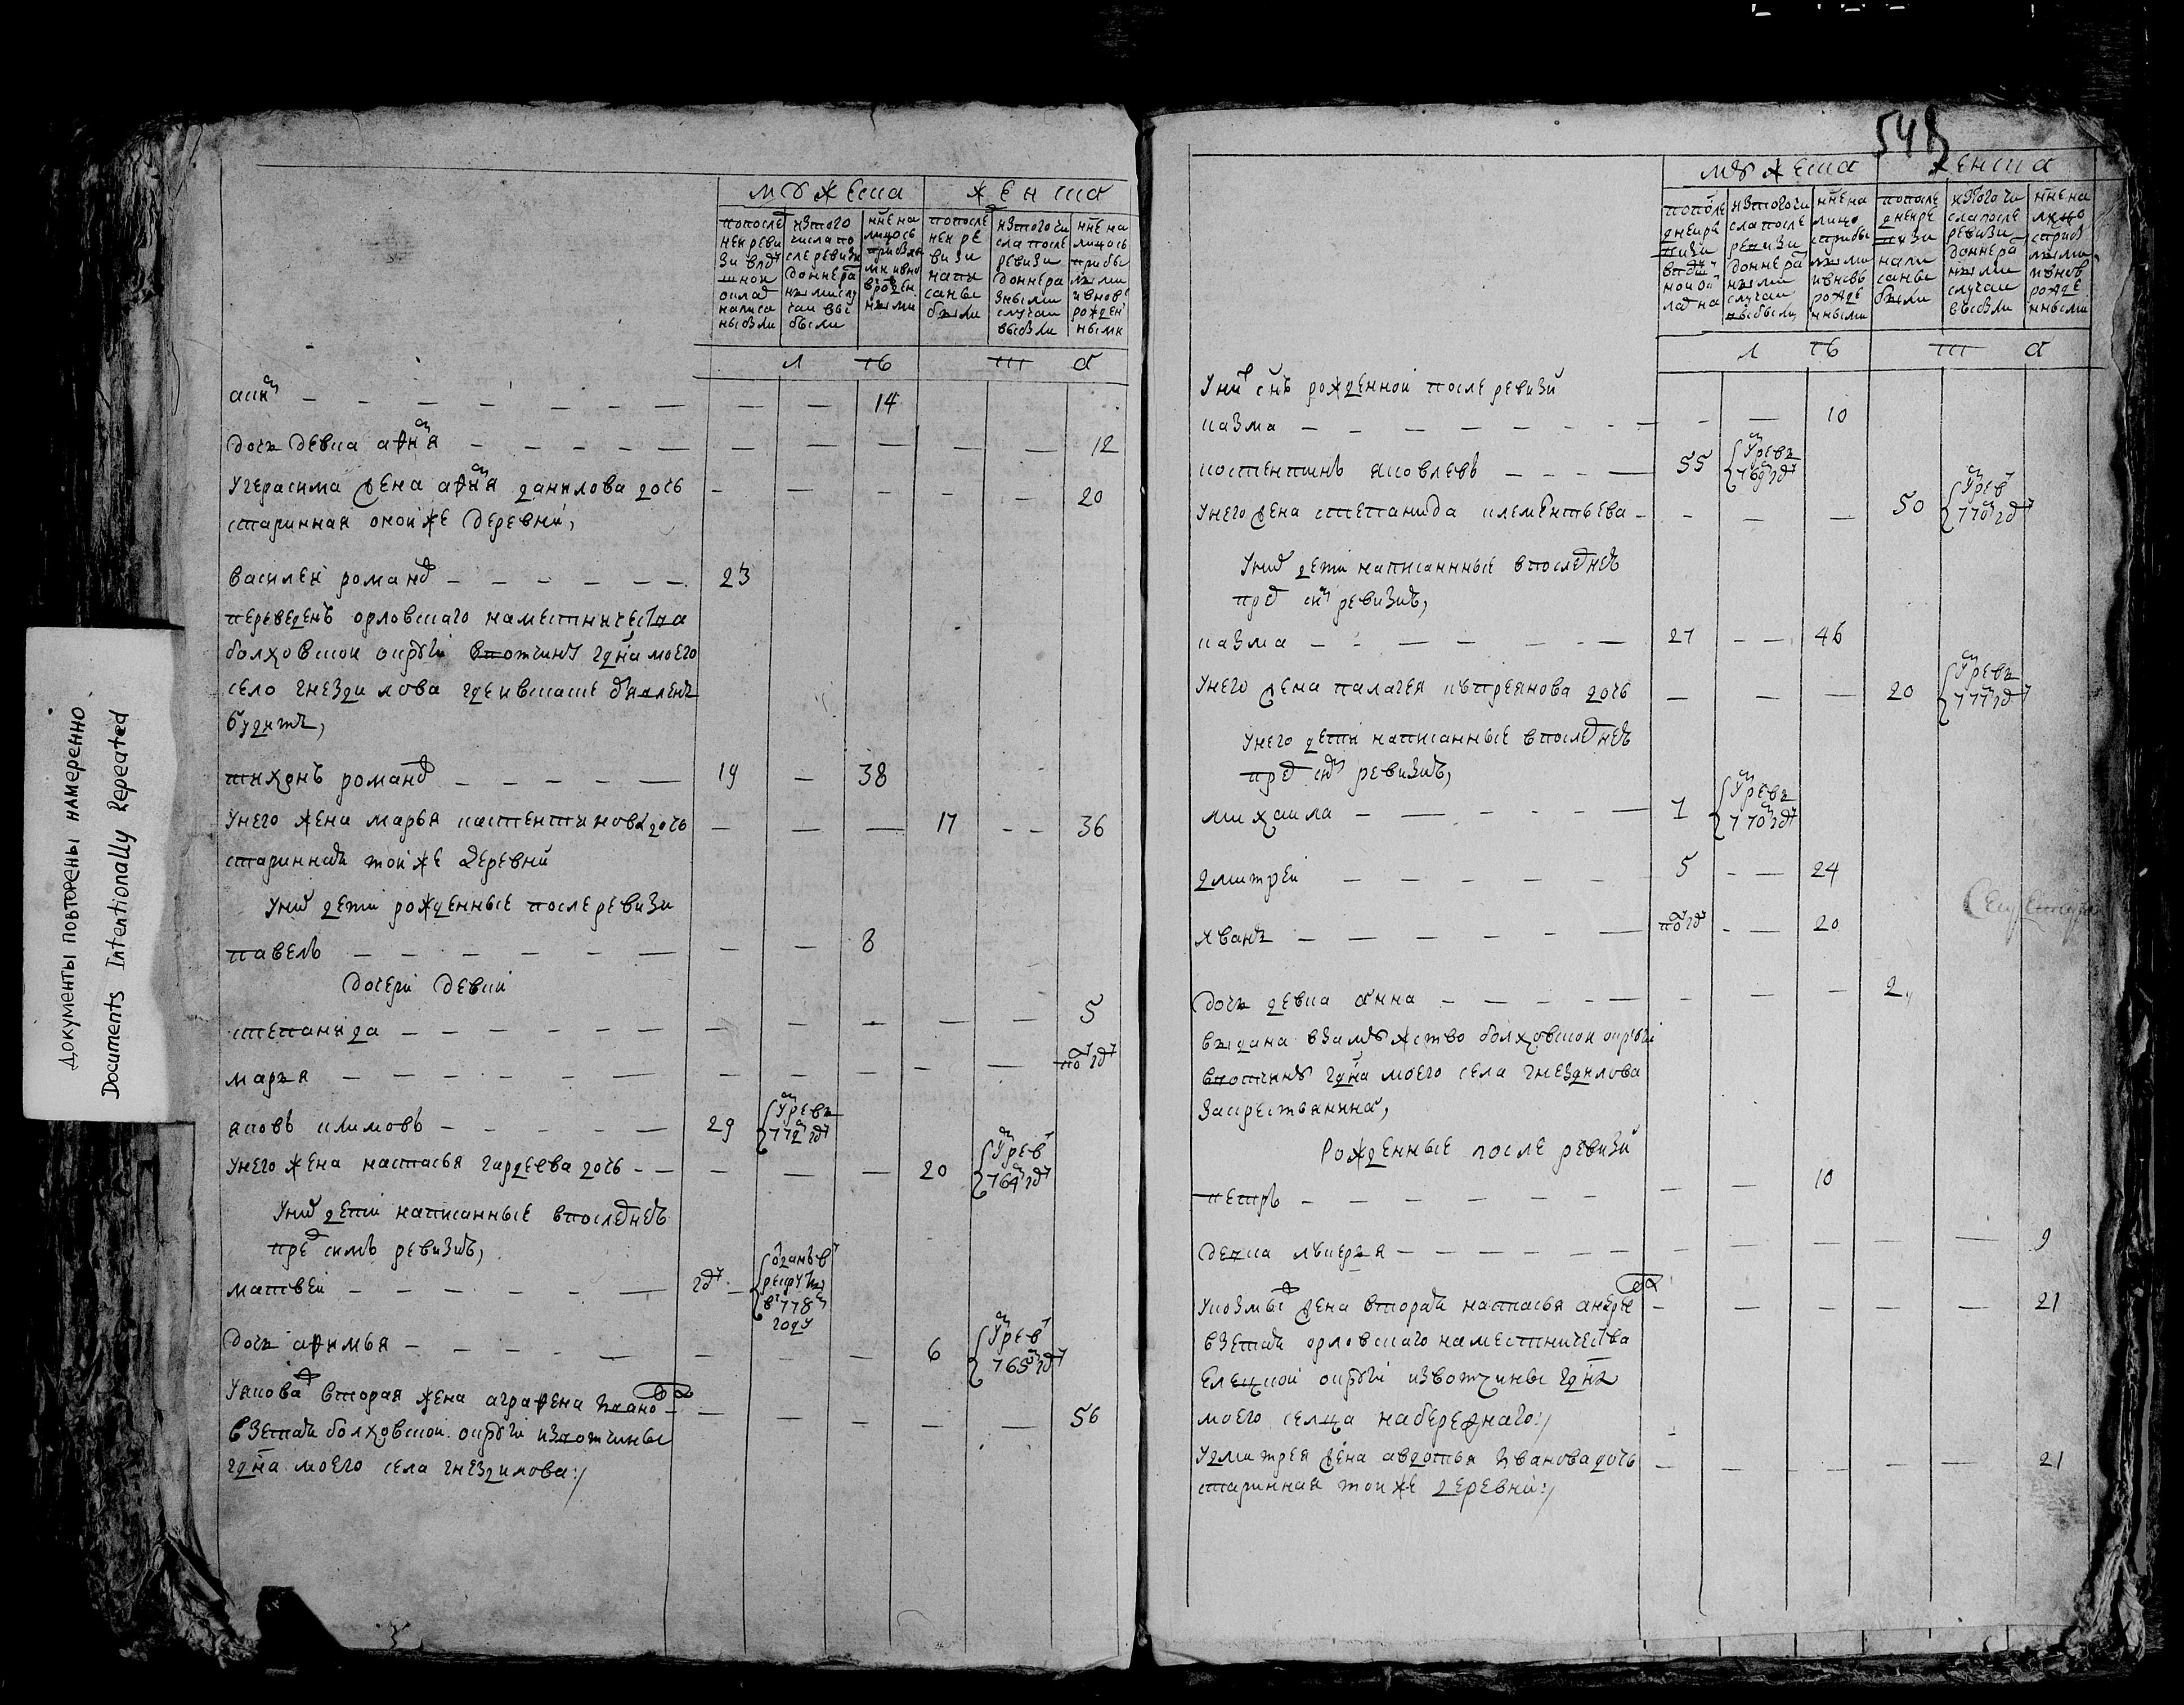 документы повторены намеренно
Documents Intentionally Repeated
мужеска женска
по последней ревизии в подушной оклад написаны были
из того числа по сле ревизи до ныне разными случаи выбыли
ныне на лицо с прибылыми и вновь рожденными
по последней ревизи написаны были
из того числа после ревизи до ныне разными случаи выбыли
ныне на лицо с прибылыми и вновь рожденными
л ѣ т а
14
дочь девка афимя — 12
У герасима жена афимя данилова дочь — 20
старинная оной же деревни,
василей романов — 23
переведенъ орловскаго наместничества
болховской округи в вотчину гдна моего
село гнездилова где и в скаске объявленъ
будитъ,
тихонъ романов — 19 — 38
У него жена марья кастентинова дочь — 17 — 36
стариннаи той же деревни
У них дети рожденные после ревизи
павелъ — 8
дочери девки
степанида — 5
марья — по год
яковъ климовъ — 29 умре въ 772м году
У него жена настасья гардеева дочь — 20 умре в 764м году
У них дети написанные в последней
пред симъ ревизиѣ,
матвей — год отданъ в рекруты в 778м году
дочь афимья — 6 умре в 765м году
У якова вторая жена аграфена иванова — 56
взетаи болховской округи из вотчины
гдна моего села гнездилова:/
548
мужеска женска
по последней ревизи в подушной оклад на
из того числа после ревизи до ныне разными случаи выбыли
ныне на лицо с прибылыми и вновь рожденными
по последней ревизи написаны были
из того числа после ревизи до ныне разными случаи выбыли
ныне на лицо с прибылыми и вновь рожденными
л ѣ т а
У них снъ рожденной после ревизи
казма — 10
костентинъ яковлевъ — 55 умре въ 769м году
У него жена степанида клементьева — 50 умре в 770м году
У них дети написанныые в последней
пред сим ревизиѣ,
казма — 27 — 46
У него жена палагея купреянова дочь — 20 умре въ 777м году
У него дети написанные в последней
пред сим ревизиѣ,
михаила — 1 умре въ 770м году
дмитрей — 5 — 24
иванъ — по год — 20
дочь девка анна — 2,,
выдана в замужство болховской округи
в вотчину гдна моего села гнездилова
за крестьянина,
Рожденные после ревизи
петръ — 10
девка лукерья — 9
У козмы жена втораи настасья андреева — 21
взетаи орловскаго наместничества
елецкой округи из вотчины гдна
моего селца набережнаго:/
У дмитрея жена авдотья иванова дочь — 21
старинная той же деревни:/